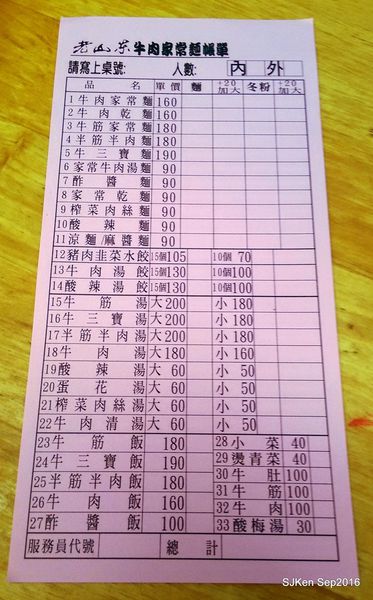 老山东牛肉家常麵帳單
請寫上桌號: 人數: 內 外
品 名 單價 麵 +20加大 冬粉 +20加大
1牛肉家常麵 160
2牛肉乾麵 160
3牛筋家常麵 180
4半筋半肉麵 180
5牛三寶麵 190
6家常牛肉湯麵 90
7酢醬麵 90
8家常乾麵 90
9榨菜肉絲麵 90
10酸辣麵 90
11涼麵/麻醬麵 90
12豬肉韭菜水餃 15個105 10個 70
13牛肉湯餃 15個130 10個100
14酸辣湯餃 15個130 10個100
15牛筋湯 大 200 小 180
16牛三寶湯 大 200 小 180
17半筋半肉湯 大 200 小 180
18牛肉湯 大 180 小 160
19酸辣湯 大 60 小 50
20蛋花湯 大 60 小 50
21榨菜肉絲湯 大 60 小 50
22牛肉清湯 大 60 小 50
23牛筋飯 180 28小菜 40
24牛三寶飯 190 29燙青菜 40
25半筋半肉飯 180 30牛肚 100
26牛肉飯 160 31牛筋 100
27酢醬飯 100 32牛肉 100
33酸梅湯 30
服務員代號 總計
SJKen Sep2016